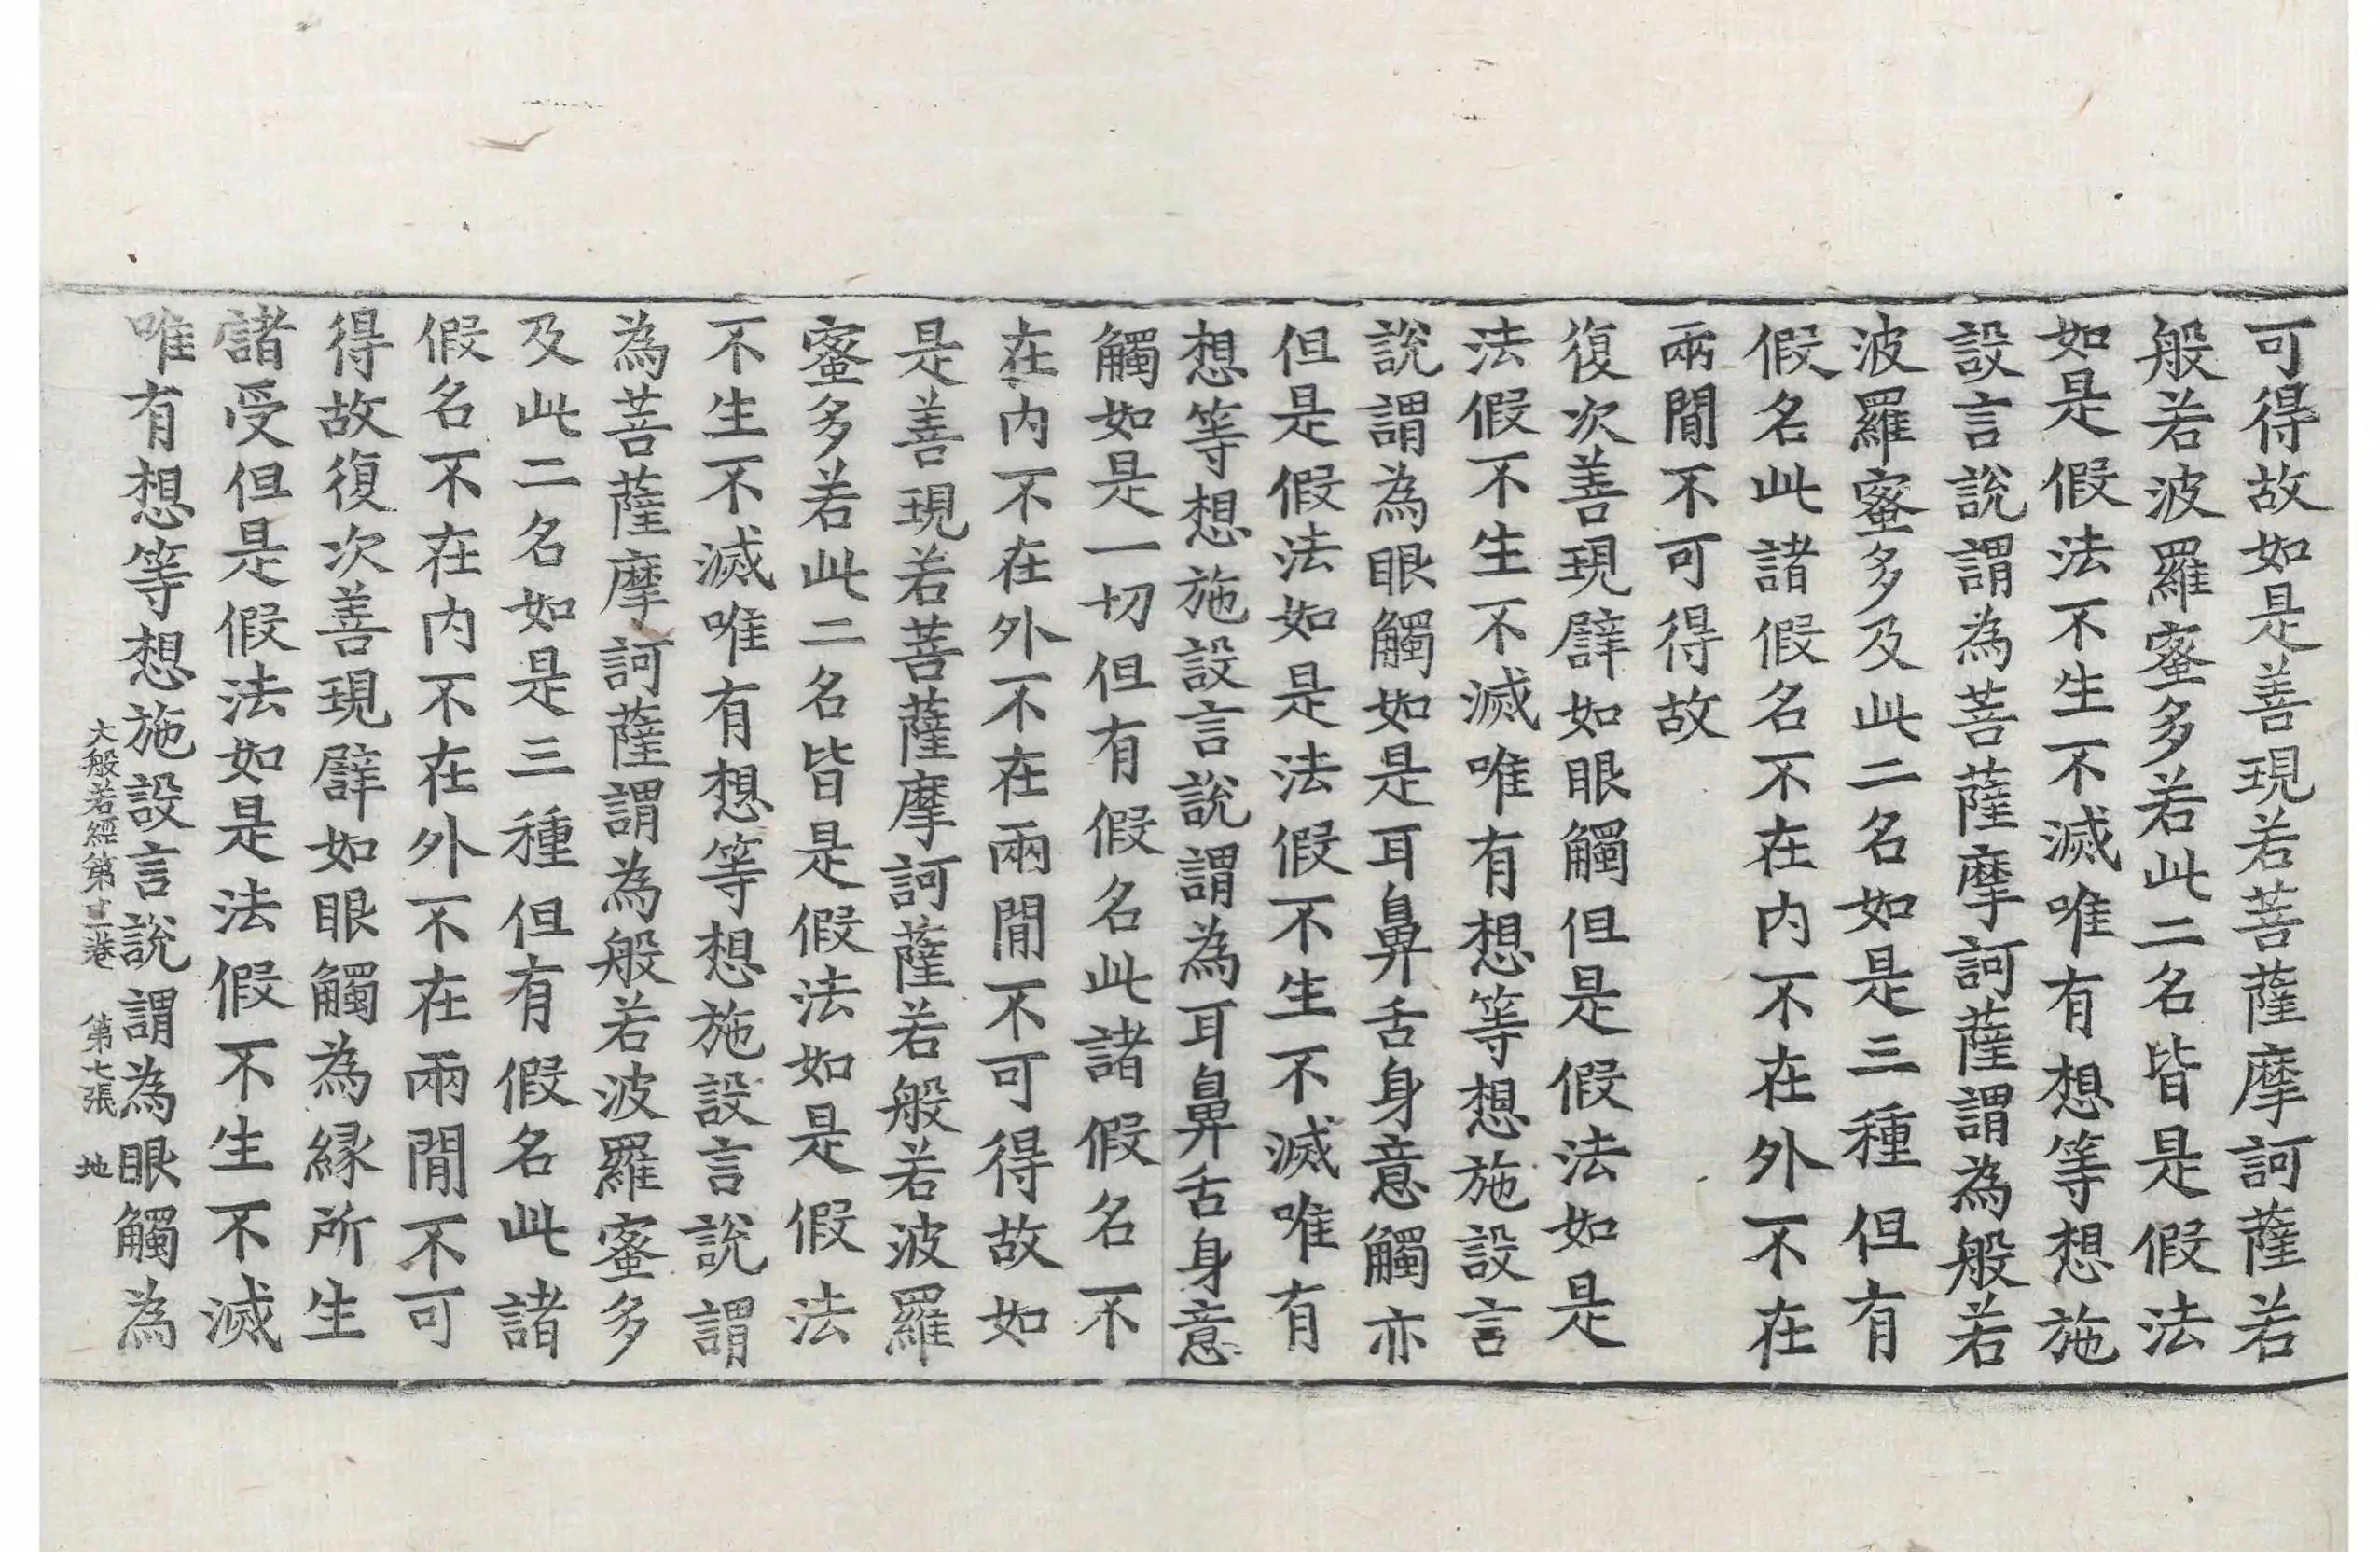 可得故如是善現若菩薩摩訶薩若
般若波羅蜜多若此二名皆是假法
如是假法不生不滅唯有想等想施
設言說謂為菩薩摩訶薩謂為般若
波羅蜜多及此二名如是三種但有
假名此諸假名不在内不在外不在
兩閒不可得故
復次善現譬如眼觸但是假法如是
法假不生不滅唯有想等想施設言
說謂為眼觸如是耳鼻舌身意觸亦
但是假法如是法假不生不滅唯有
想等想施設言說謂為耳鼻舌身意
觸如是一切但有假名此諸假名不
在内不在外不在兩閒不可得故如
是善現若菩薩摩訶薩若般若波羅
蜜多若此二名皆是假法如是假法
不生不滅唯有想等想施設言說謂
為菩薩摩訶薩謂為般若波羅蜜多
及此二名如是三種但有假名此諸
假名不在内不在外不在兩閒不可
得故復次善現譬如眼觸為緣所生
諸受但是假法如是法假不生不滅
唯有想等想施設言說謂為眼觸為
大般若經第十一卷 第七張 地